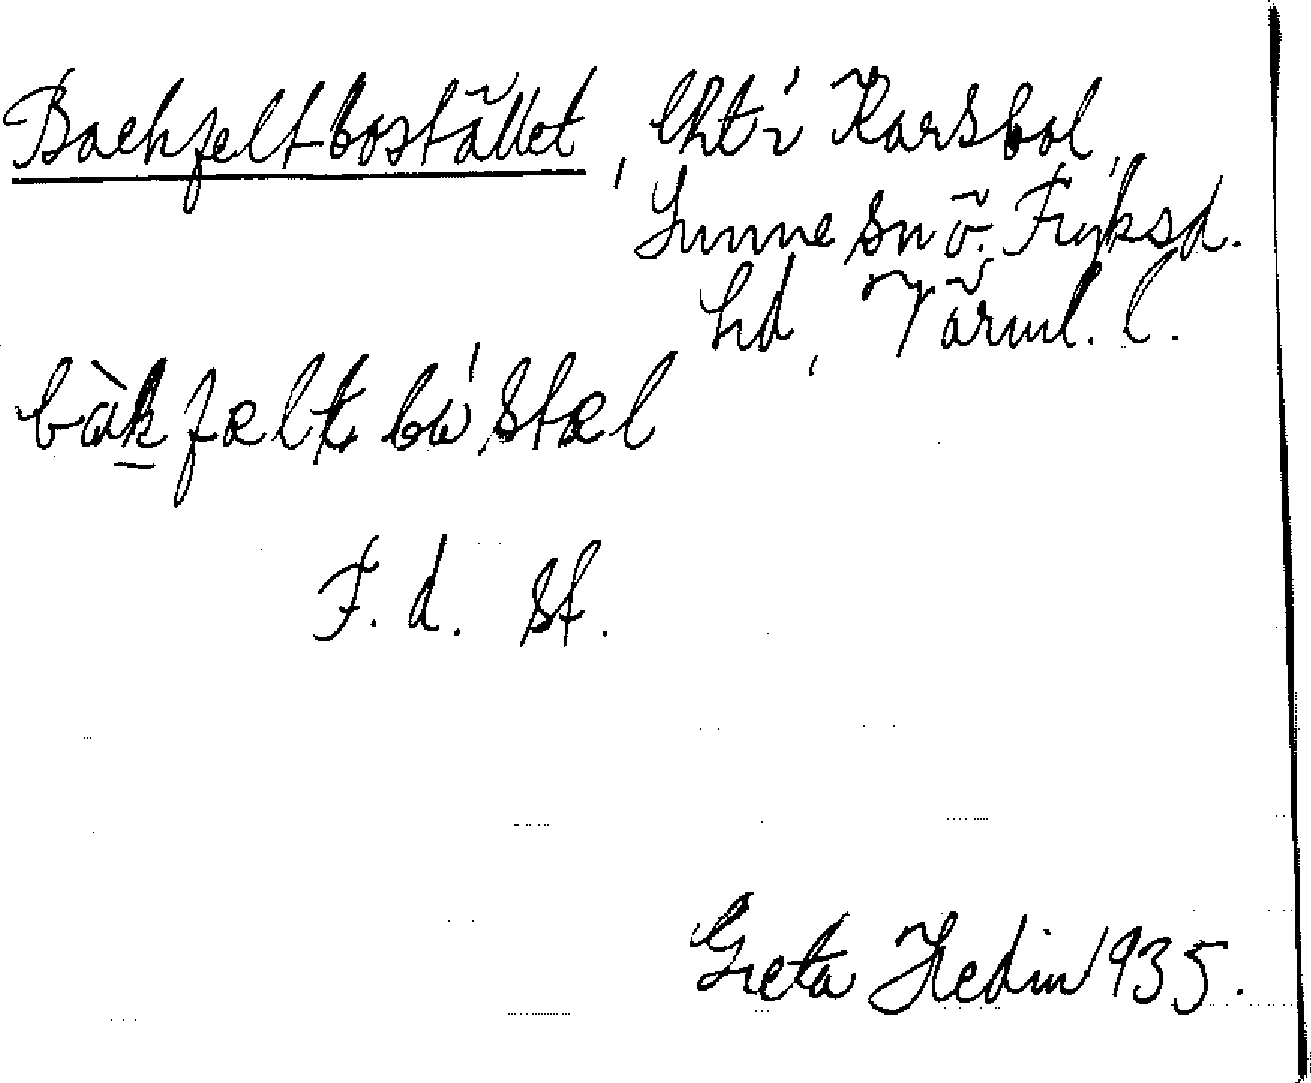 Backfeltbostället, lht i Karsbol,
Sunne sn ö. Fryksd.
hd, Värml. l.
bàk fælt bó stæl
F. d. st.
Greta Hedin 1935.